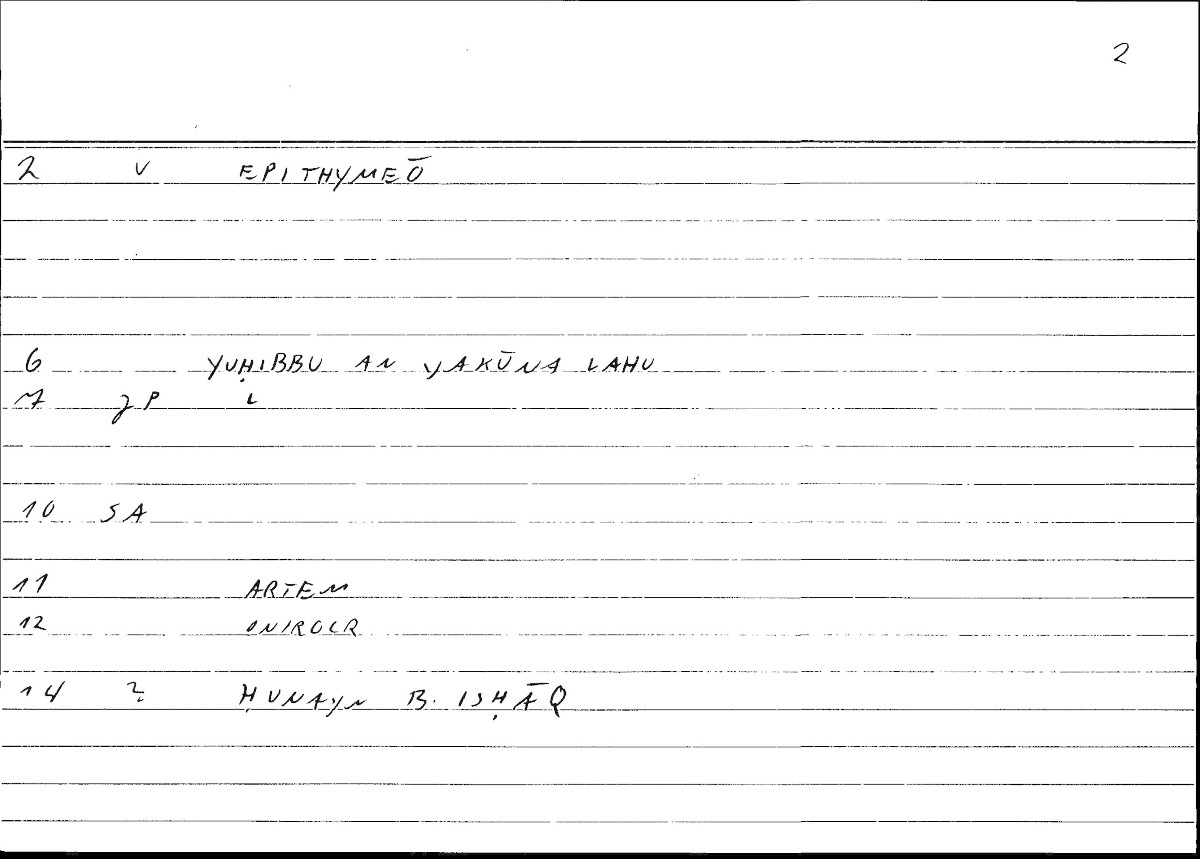 2
2 V EPITHYMEŌ
6 YUḤIBBU AN YAKŪNA LAHU
7 P L
10 SA
11 ARTEM
12 ONIROCR
14 2 ḤUNAYN B. ISḤĀQ